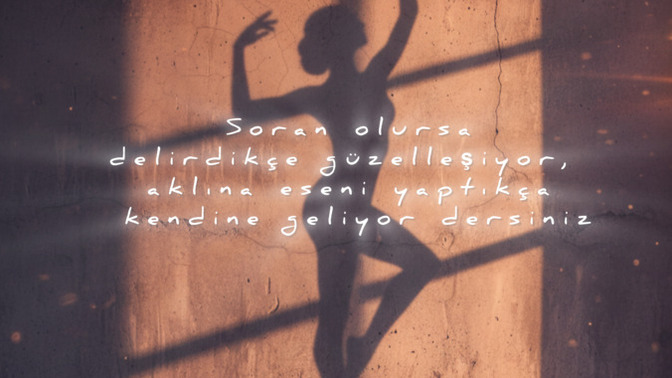 Soran olursa
delirdikçe güzelleşiyor,
aklına eseni yaptıkça
kendine geliyor dersiniz